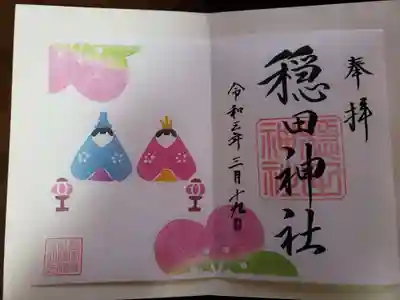 奉拝
穏田神社
令和三年三月十九日